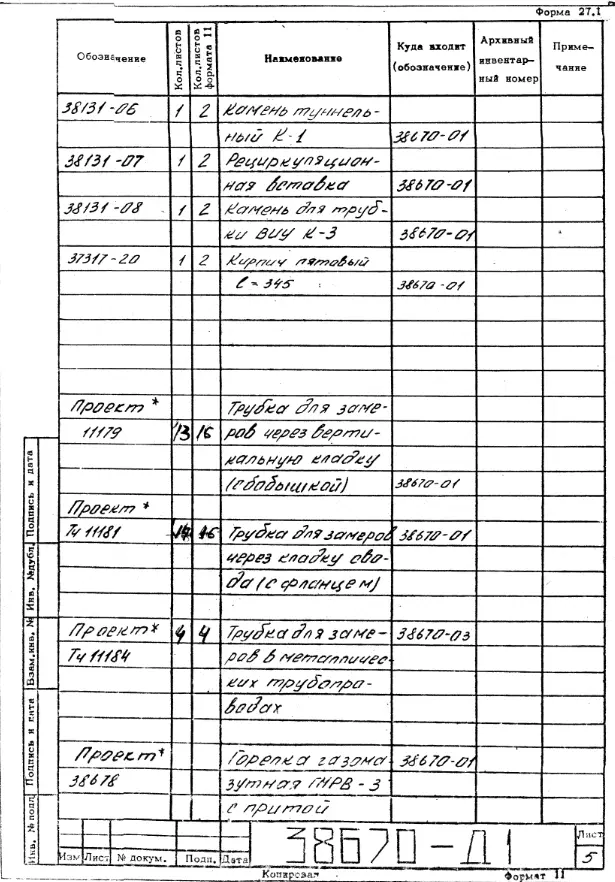 Форма 27.1
Обозначение Кол.листов Кол.листов формата 11 Наименование Куда входит (обозначение) Архивный инвентарный номер Примечание
38131-06 1 2 Камень туннель-
ный К-1 38670-01
38131-07 1 2 Рециркуляцион-
ная вставка 38670-01
38131-08 1 2 Камень для труб-
ки ВИУ К-3 38670-01
37317-20 1 2 Кирпич пятовый
ℓ = 345 38670-01
Проект * Трубка для заме-
11179 13 16 ров через верти-
кальную кладку
(с бобышкой) 38670-01
Проект *
Тч 11181 Трубка для замеров 38670-01
через кладку сво-
да (с фланцем)
Проект * 4 4 Трубка для заме- 38670-03
Тч 11184 ров в металличес-
ких трубопро-
водах
Проект * Горелка газома- 38670-01
38678 зутная ГНРВ-3
с притой
Инв. № подл. Подпись и дата Взам.инв. № Инв. №дубл. Подпись и дата
Изм Лист № докум. Подп. Дата
38670-Д1
Лист
5
Копировал Формат 11